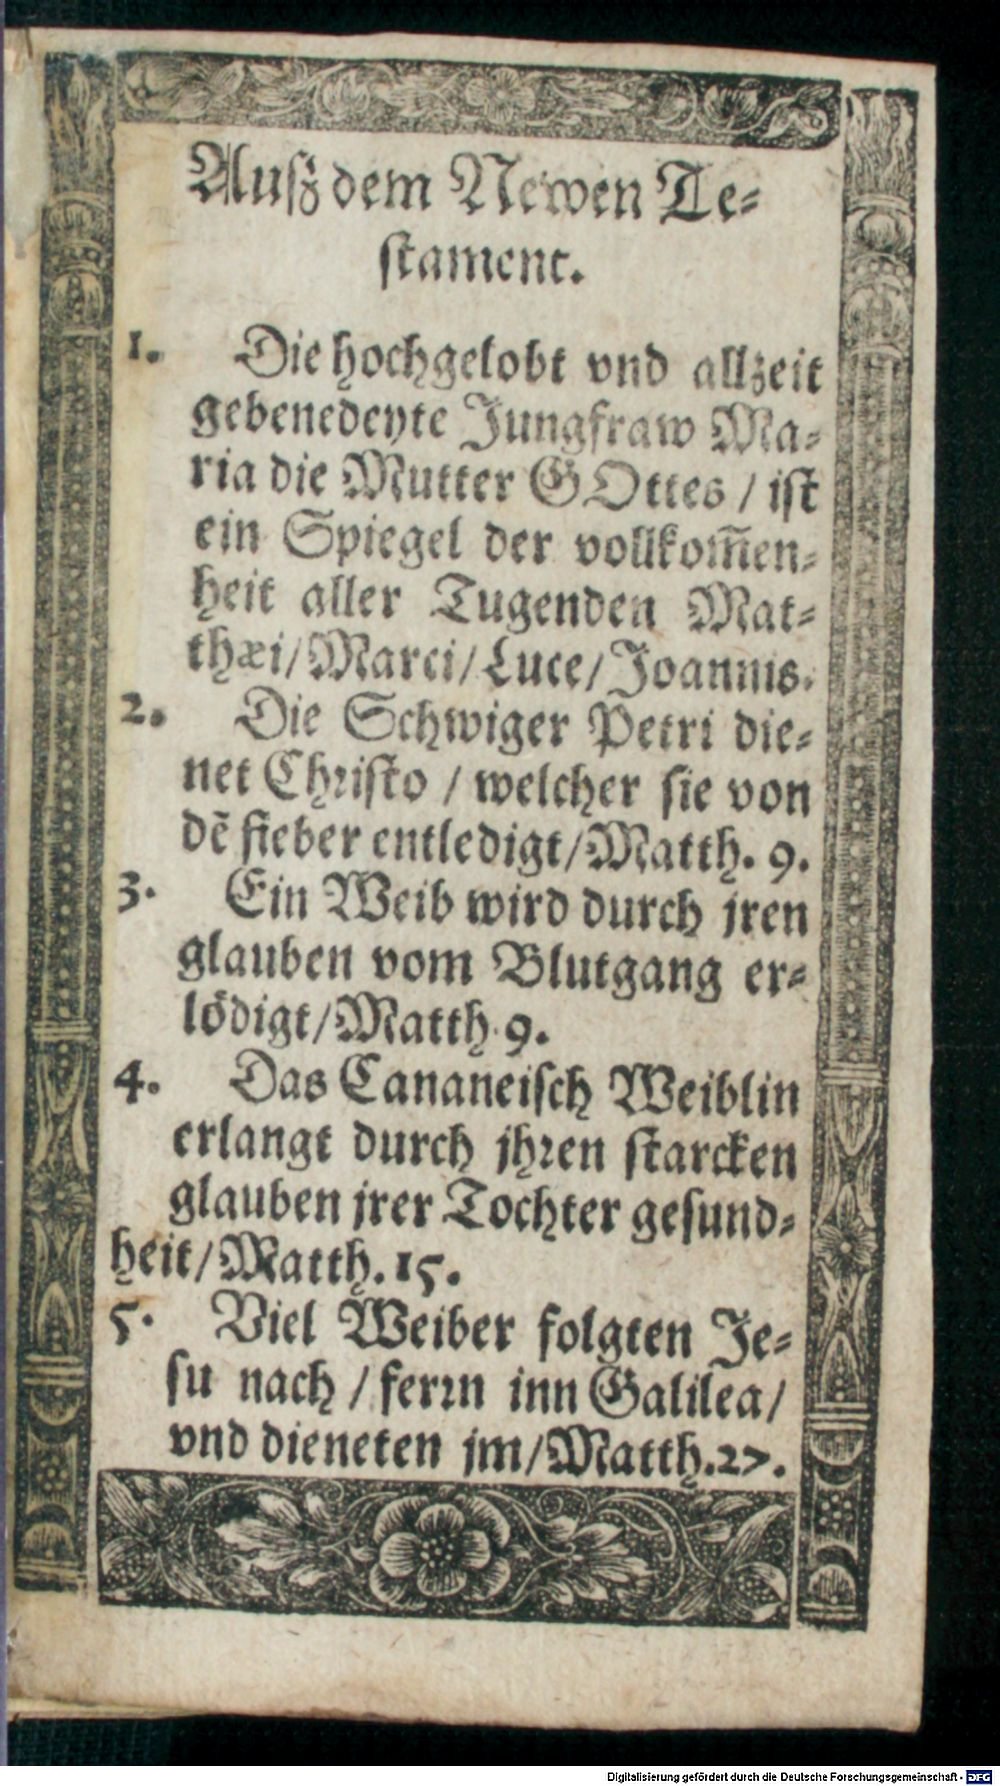 Auſz dem Newen Te⸗
ſtament.
1. Die hochgelobt vnd allzeit
gebenedeyte Jungfraw Ma⸗
ria die Mutter GOttes / iſt
ein Spiegel der vollkom̃en⸗
heit aller Tugenden Mat⸗
thæi/Marci/Luce/Joannis.
2. Die Schwiger Petri die⸗
net Chꝛiſto / welcher ſie von
dẽ fieber entledigt/Matth. 9.
3. Ein Weib wird durch jren
glauben vom Blutgang er⸗
lödigt/Matth. 9.
4. Das Cananeiſch Weiblin
erlangt durch jhꝛen ſtarcken
glauben jrer Tochter geſund⸗
heit/Matth. 15.
5. Viel Weiber folgten Je⸗
ſu nach / ferꝛn inn Galilea/
vnd dieneten jm/Matth. 27.
Digitalisierung gefördert durch die Deutsche Forschungsgemeinschaft - DFG